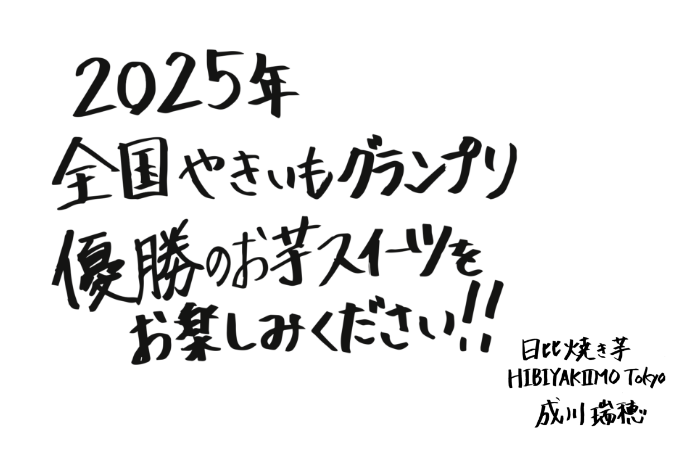 2025年
全国やきいもグランプリ
優勝のお芋スイーツを
お楽しみください!!
日比焼き芋
HIBIYAKIIMO Tokyo
成川瑞穂